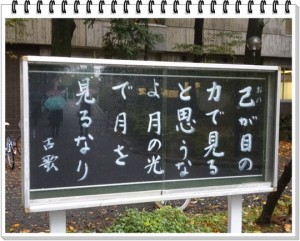 おの
己が目の
力で見る
と思うな
よ月の光
で月を
見るなり
古歌